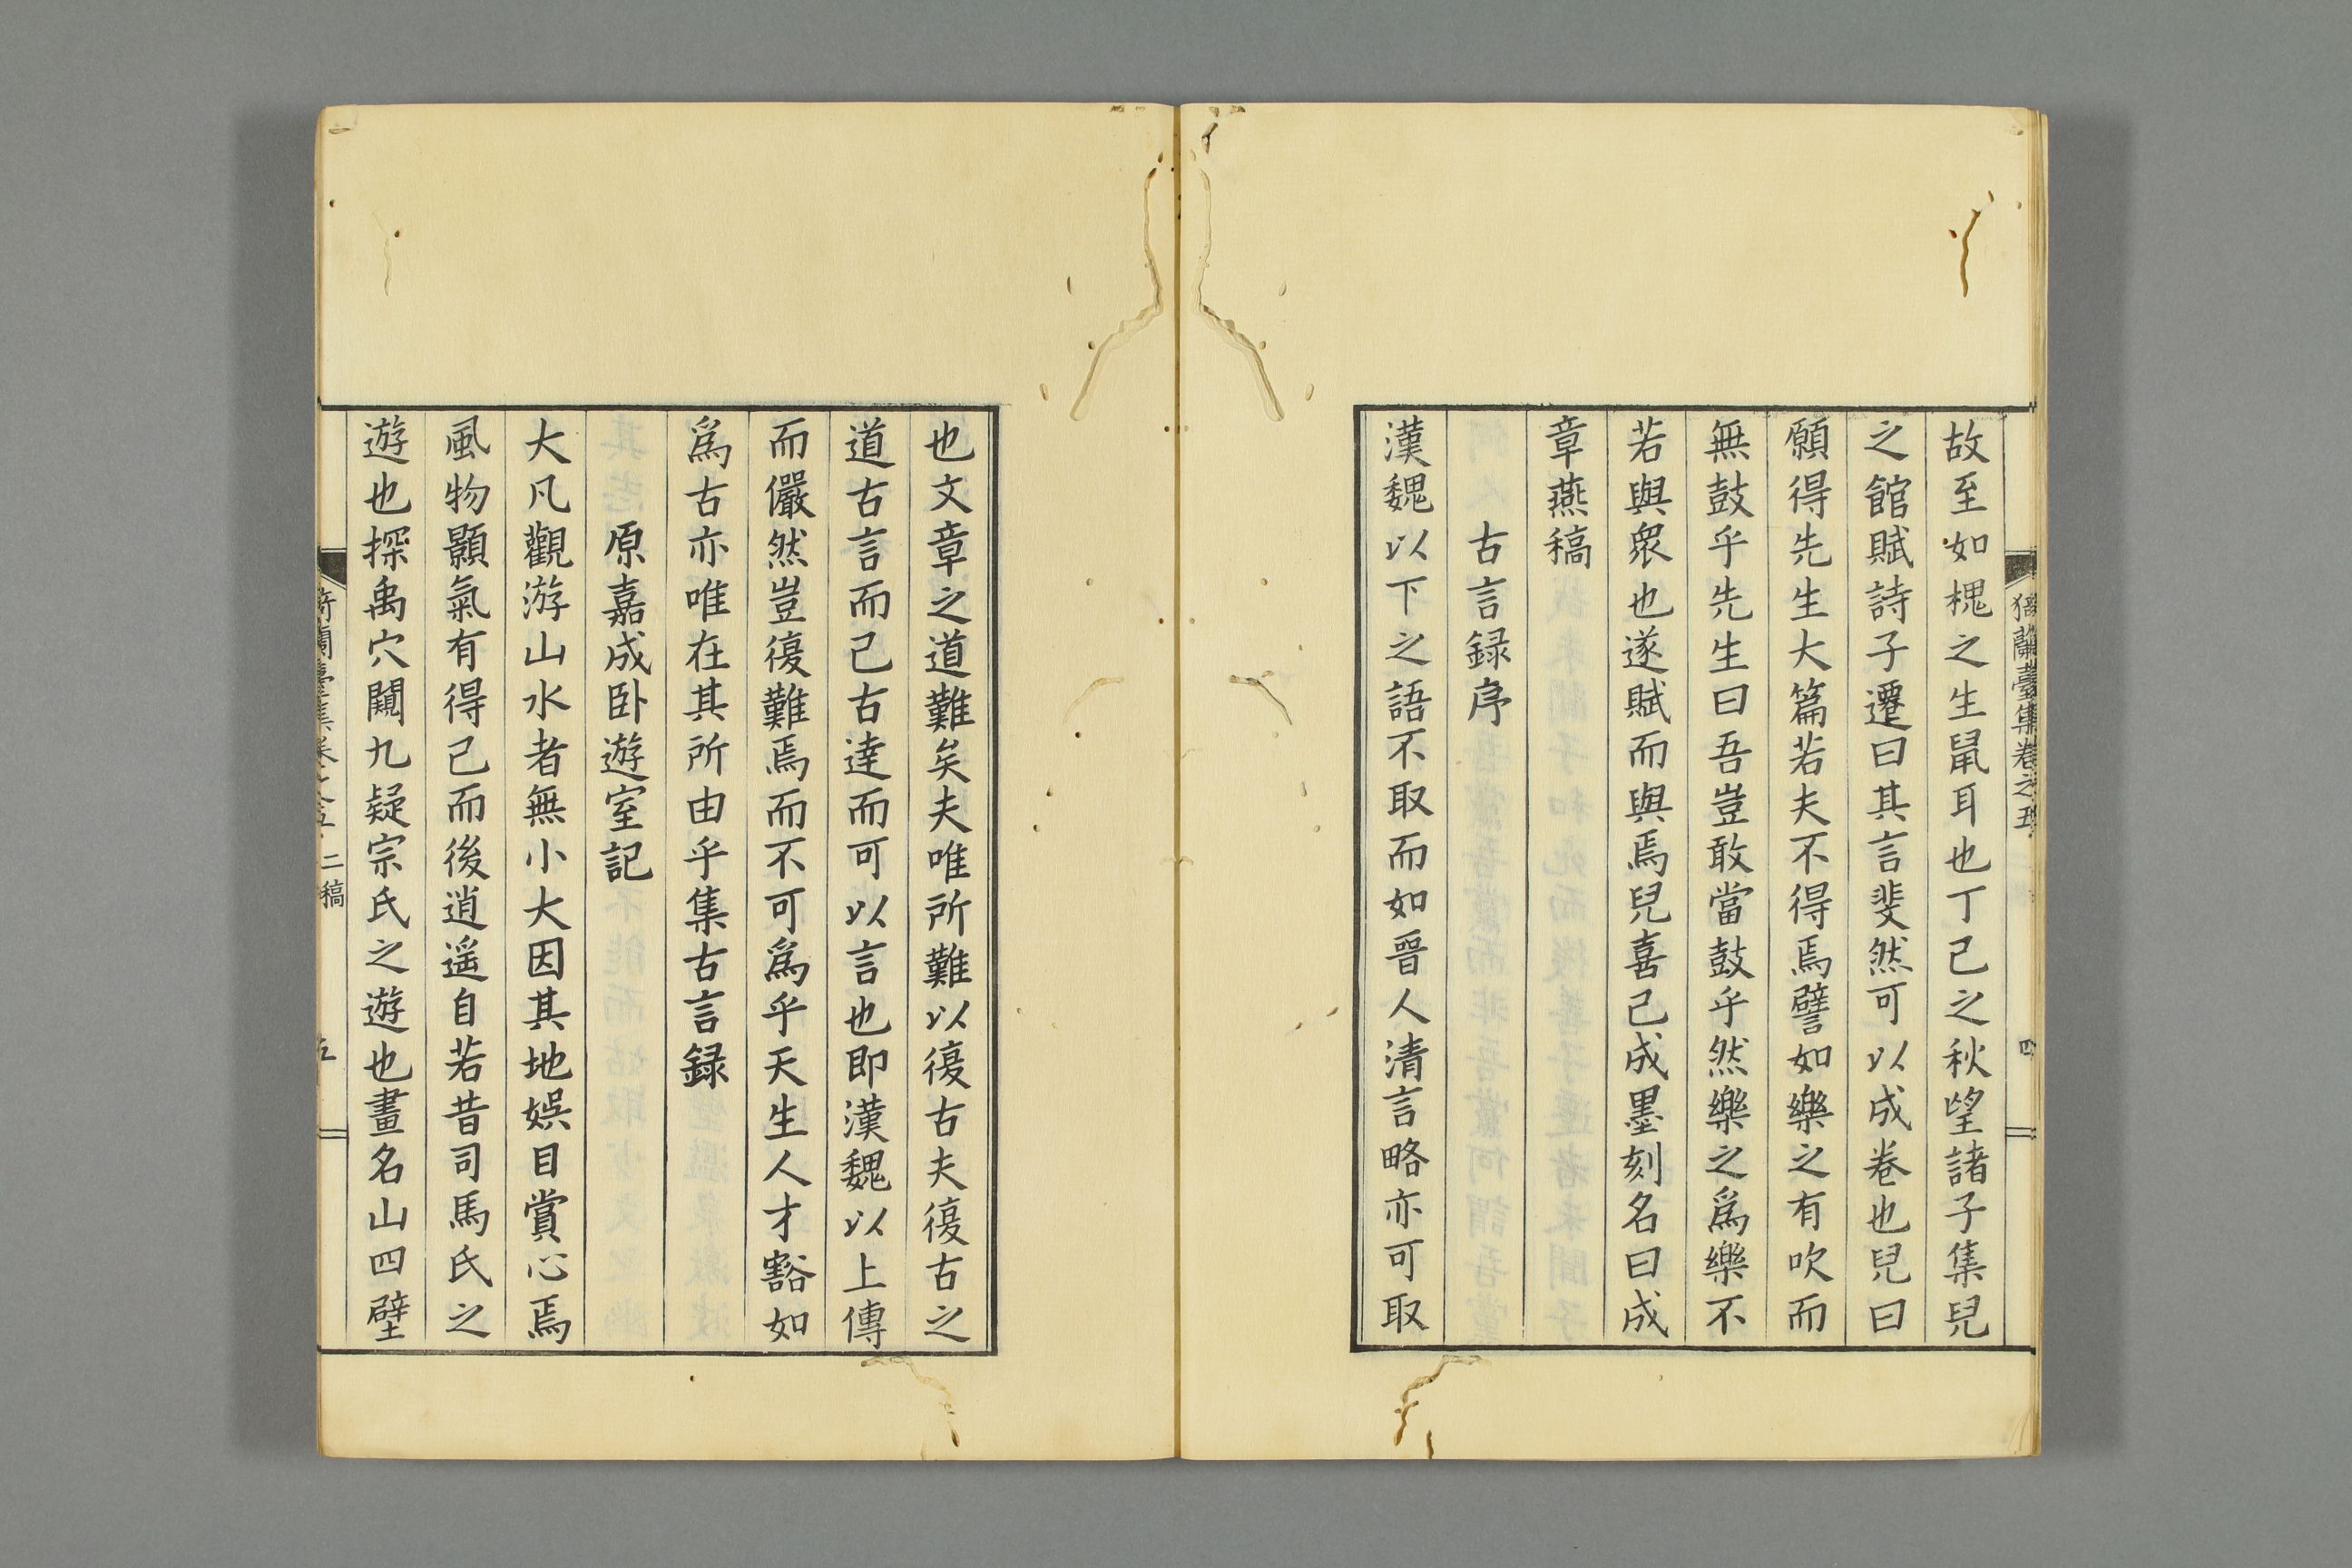 故至如槐之生鼠耳也丁巳之秋望諸子集兒
之館賦詩子遷曰其言斐然可以成卷也兒曰
願得先生大篇若夫不得焉譬如樂之有吹而
無鼓乎先生曰吾豈敢當鼓乎然樂之爲樂不
若與衆也遂賦而與焉兒喜已成墨刻名曰成
章燕稿
古言録序
漢魏以下之語不取而如晉人清言略亦可取
也文章之道難矣夫唯所難以復古夫復古之
道古言而已古達而可以言也即漢魏以上傳
而儼然豈復難焉而不可爲乎天生人才豁如
爲古亦唯在其所由乎集古言録
原嘉成卧遊室記
大凡觀游山水者無小大因其地娯目賞心焉
風物顥氣有得已而後逍遥自若昔司馬氏之
遊也探禹穴闚九疑宗氏之遊也畫名山四壁
蘭臺集卷之五
四
二稿
五